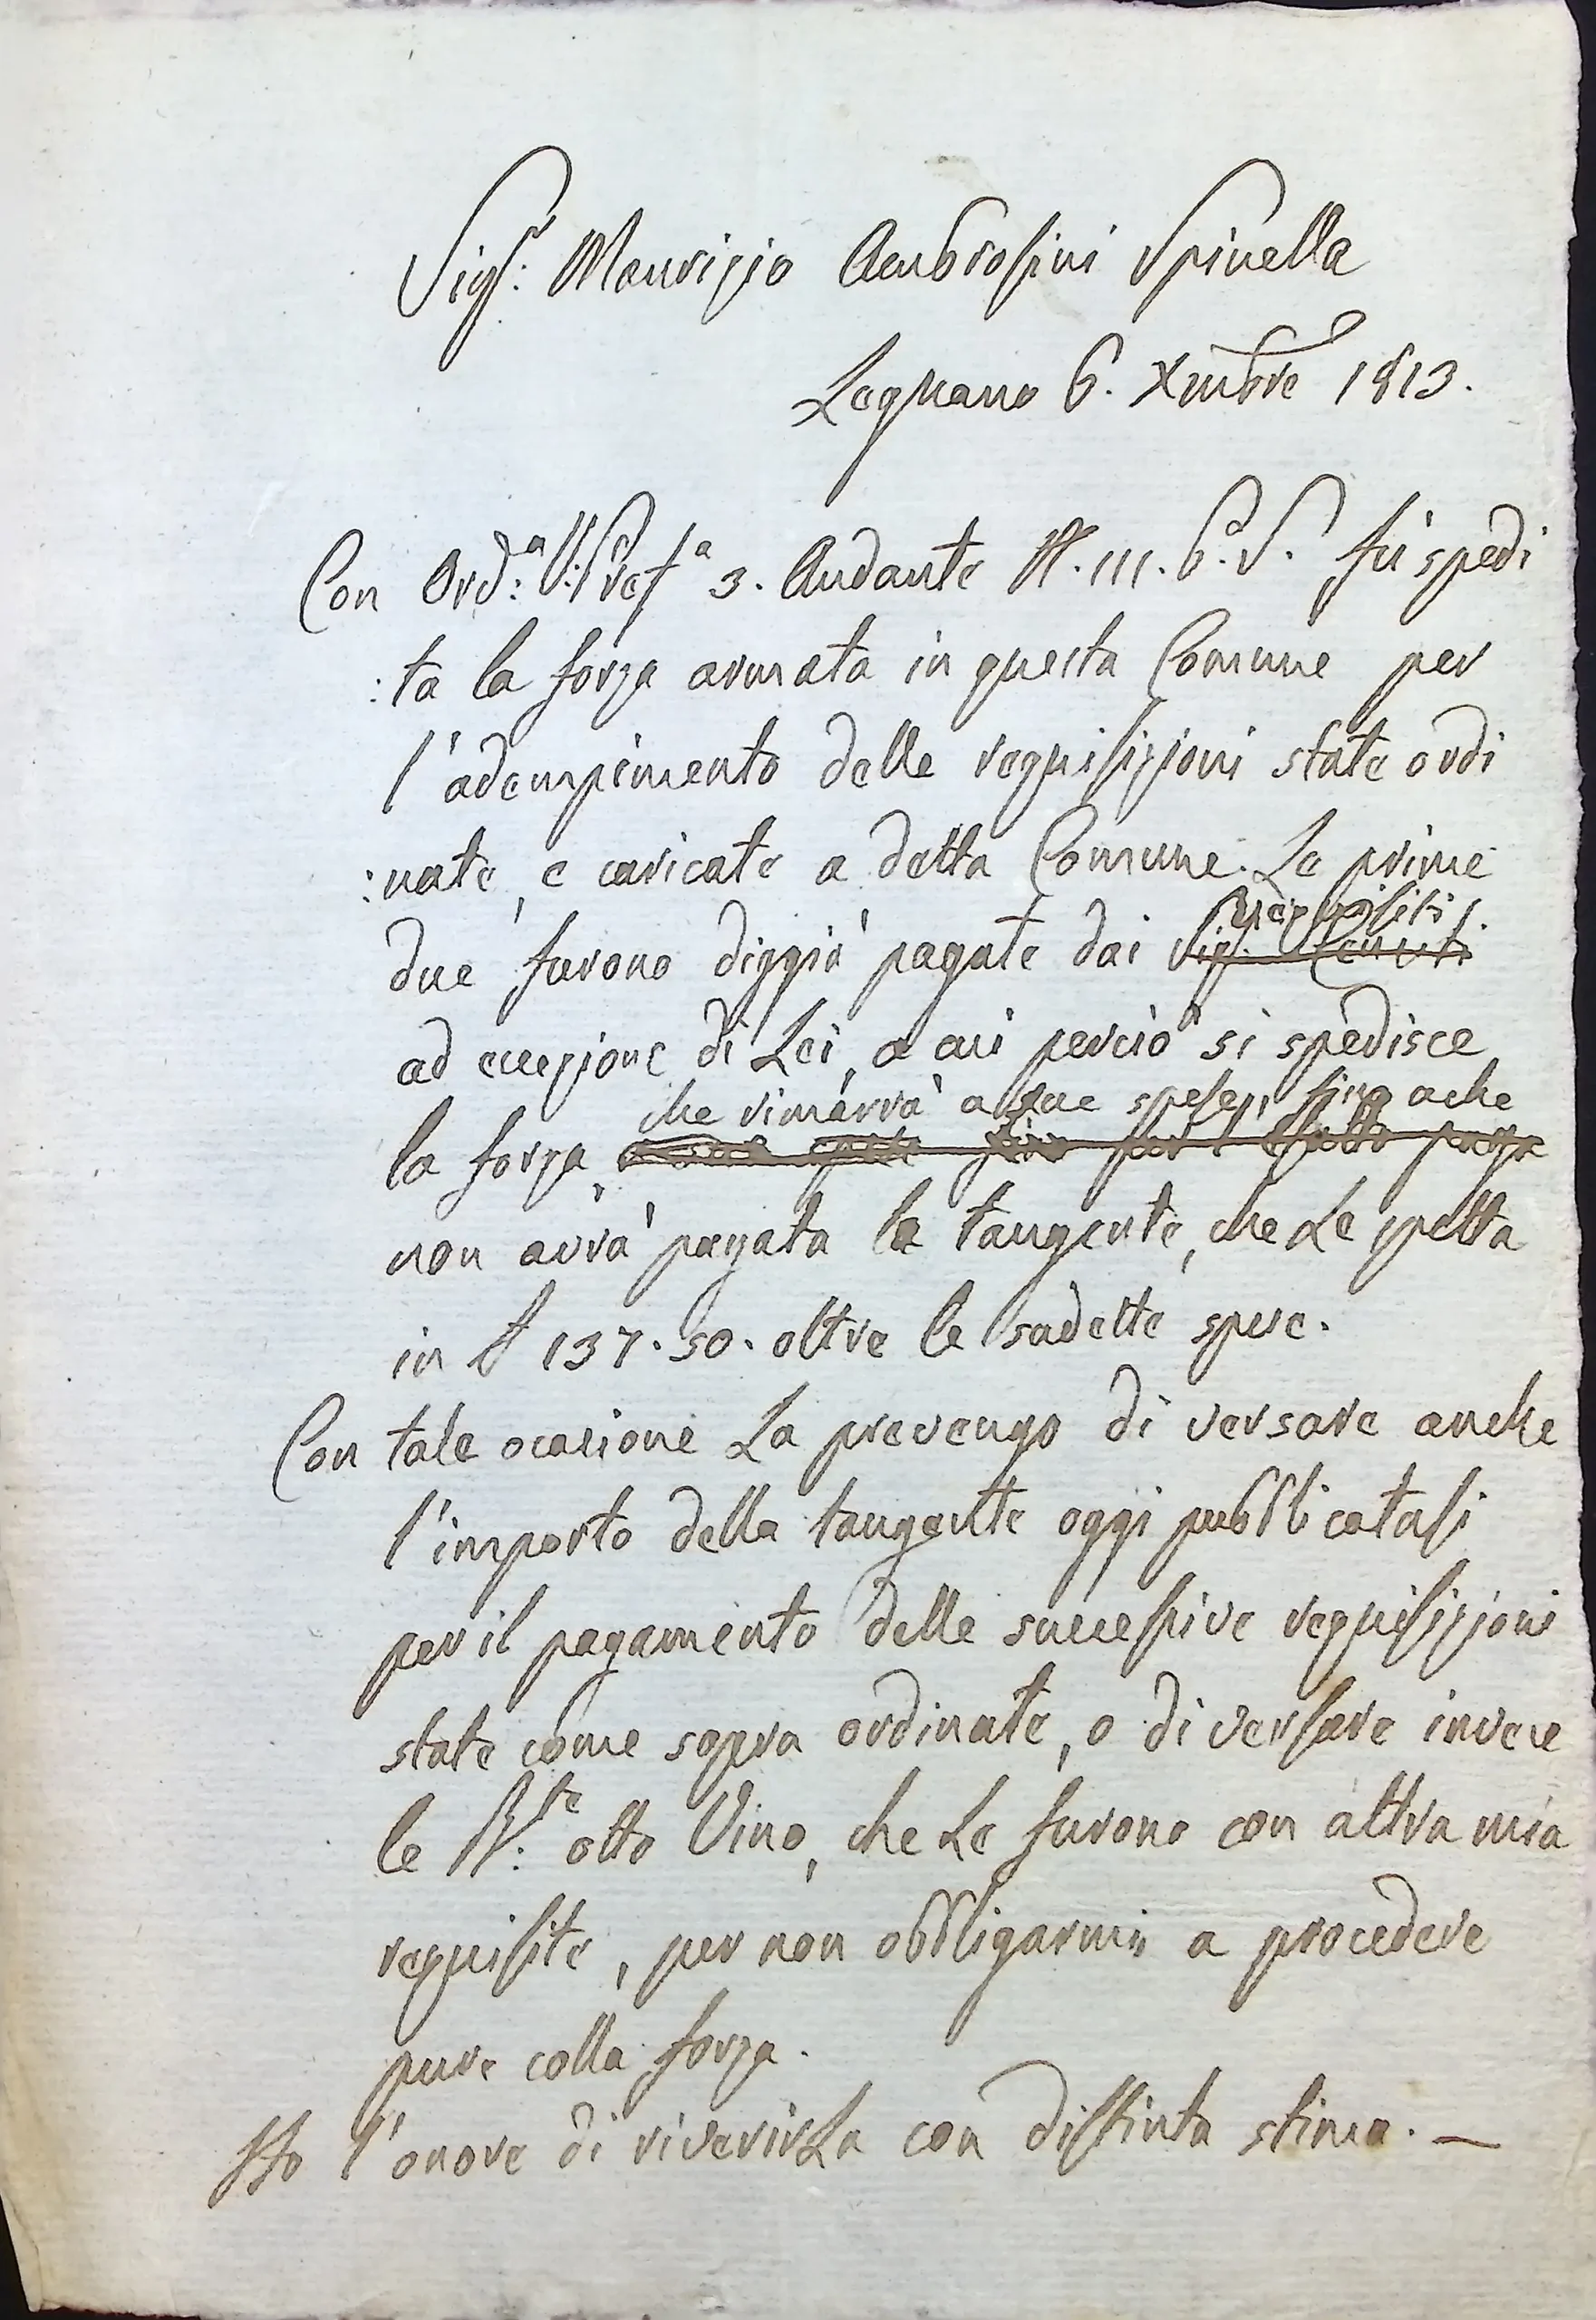 Sig.r: Maurizio Ambrosini Spinella
Legnano 6. Xmbre 1813.
Con Ord:a V: Pref.a 3. Andante N. 111. P. S. fù spedi
:ta la forza armata in questa Comune per
l'adempimento delle requisizioni state ordi
:nate, e caricate a detta Comune. Le prime
requisiti
due furono diggià pagate dai Sig.
ad ecezione di Lei, a cui perciò si spedisce
che rimarrà a sue spese, fino ache
la forza,
non avrà pagata la tangente, che Le spetta
in £ 137. 50. oltre le sudette spese.
Con tale ocasione La prevengo di versare anche
l'importo della tangente oggi pubblicatasi
per il pagamento delle successive requisizioni
state come sopra ordinate, o di versare invece
le B:te otto Vino, che Le furono con altra mia
requisite, per non obbligarmi a procedere
pure colla forza.
Ho l'onore di riverirLa con distinta stima. —